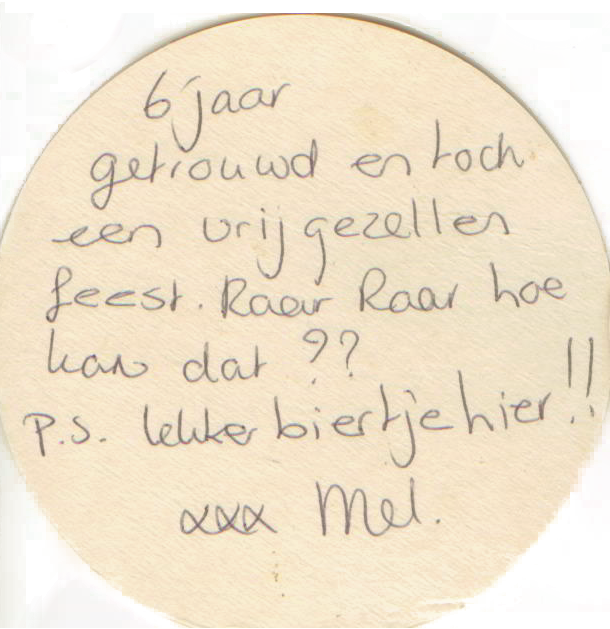 6 jaar
getrouwd en toch
een vrijgezellen
feest. Raar Raar hoe
kan dat ??
P.S. lekker biertje hier !!
xxx Mel.